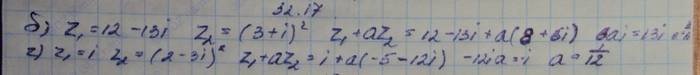 32.17
б) z₁=12-13i z₂=(3+i)² z₁+az₂=12-13i+a(8+6i) 6ai=13i
г) z₁=i z₂=(2-3i)² z₁+az₂=i+a(-5-12i) -12ia=i a=1/12